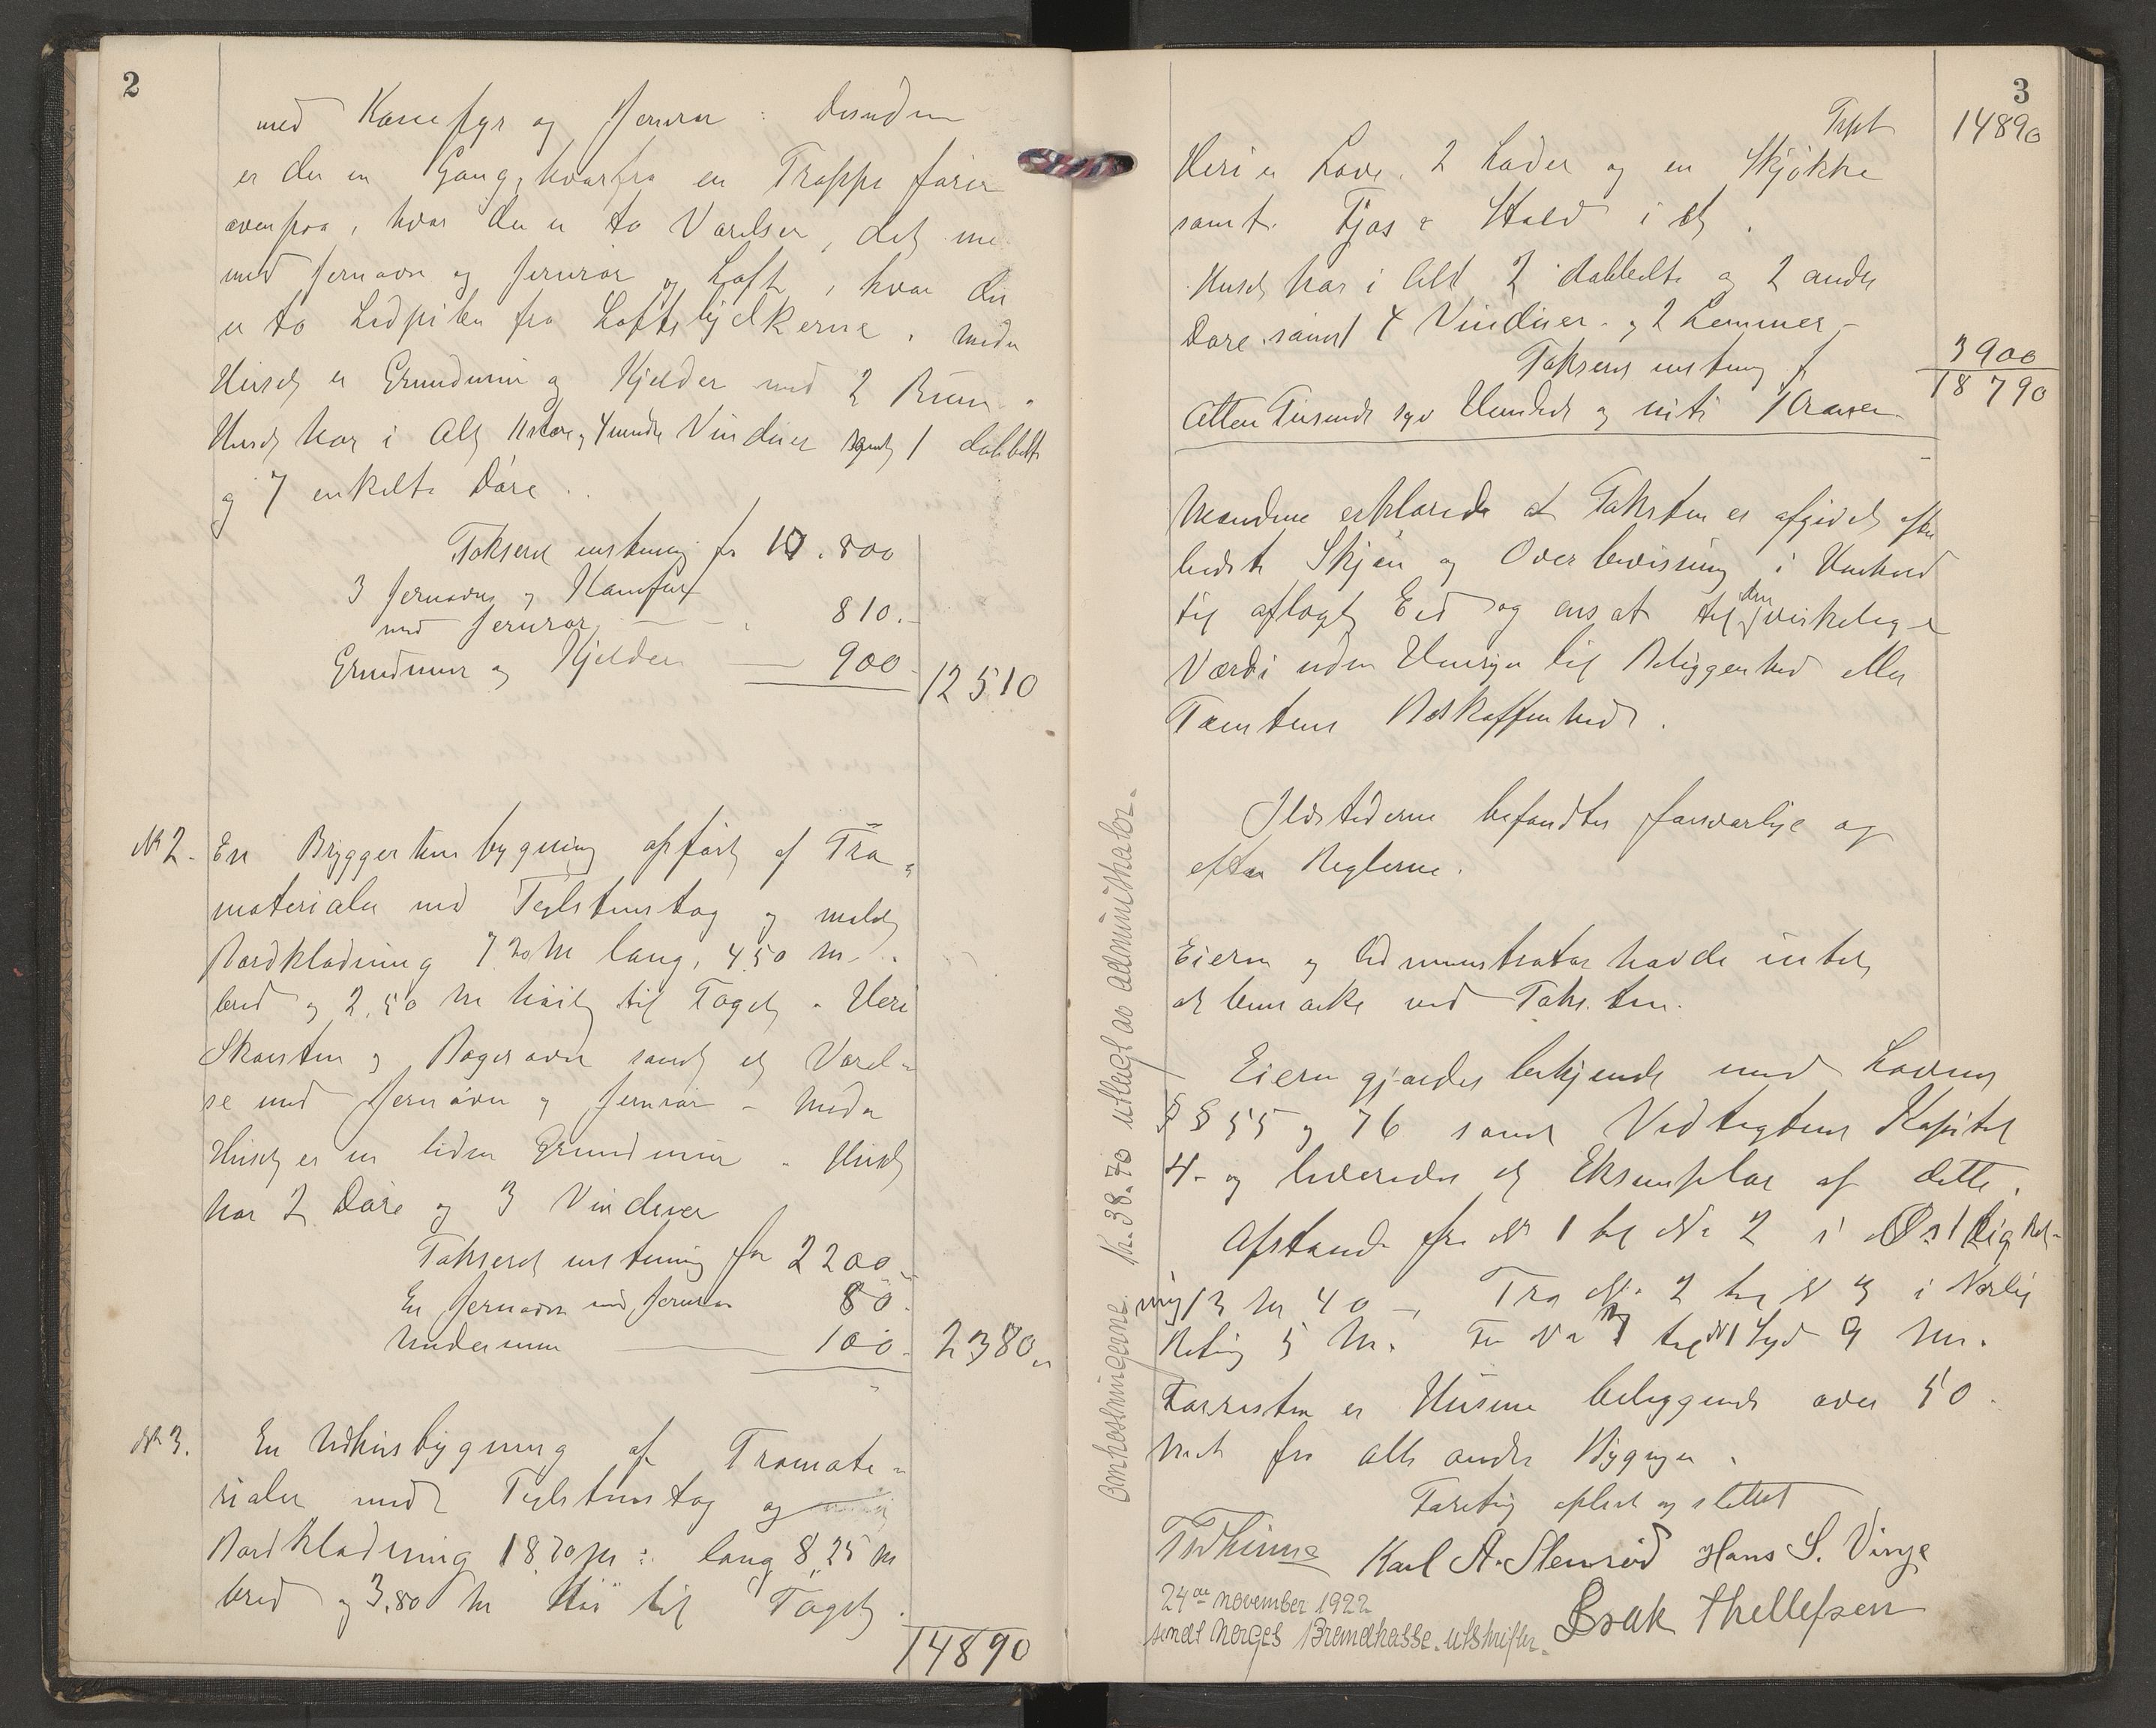 2
med Kamfyr og Jernrør : desuden
er der en Gang, hvorfra en Trappe fører
ovenpaa, hvor der er to Værelser, det ene
med Jernovn og Jernrør og Loft, hvor der
er to Ledpiber fra Loftsbjelkerne. Under
Huset er Grundmur og Kjelder med 2 Rum.
Huset har i Alt 11 store, 4 mindre Vinduer samt 1 dobbelt
og 7 enkelte Døre.
Takseret uten mur for 10.800
3 Jernovne og Kamfyr
med Jernrør — 810.-
Grundmur og Kjelder — 900 12510
No 2. En Bryggerhusbygning opført af Træ-
materialer med Teglstenstag og malet
Bordklædning 7.20 M lang, 4.50 M.
bred og 2.50 M høit til Taget. Heri
Skorsten og Bagerovn samt et Værel-
se med Jernovn og Jernrør - Under
Huset er en liden Grundmur. Huset
har 2 Døre og 3 Vinduer
Takseret for 2200.-
En Jernovn med Jernrør 80.-
Undermur — 100.- 2380
No 3. En Udhusbygning af Træmate-
rialer med Teglstenstag og
Bordklædning 18.70 M lang 8,25 M
bred og 3.80 M høi til Taget.
14890
3
Trpt 14890
Heri er Love, 2 Lader og en Skjøkke
samt Fjøs & Stald i et.
Huset har i Alt 2 dobbelte og 2 andre
Døre samt 4 Vinduer og 2 Lemmer -
Takseret 3900
18790
Atten Tusende syv Hundrede og niti Kroner
Mændene erklærede at Taksten er afgivet efter
bedste Skjøn og Overbevisning i Henhold
til aflagt Ed og ansat til den virkelige
Værdi uden Hensyn til Beliggenhed eller
Tomtens Beskaffenhed.
Ildstederne befandtes forsvarlige og
efter Reglerne.
Eieren og Administrator havde intet
at bemærke ved Taksten.
Eieren gjordes bekjendt med Lovens
§ § 55 og 76 samt Vedtægtens Kapitel
4 - og leveredes et Eksemplar af dette.
Afstande fra No 1 til No 2 i Østlig Ret-
ning 13 M 40 -, Fra No 2 til No 3 i Nordlig
Retning 5 M. Fra No 3 til No 1 Syd 9 M.
Forresten er Husene beliggende over 50
Met fra alle andre Bygninger.
Forretning oplæst og sluttet
Karl A. Stensrød Hans S. Virge
Isak Thellefsen
24de november 1922
sendt Norges Brandkasse utskrifter.
Omkostningerne Kr. 38.70 utlagt av administrator.